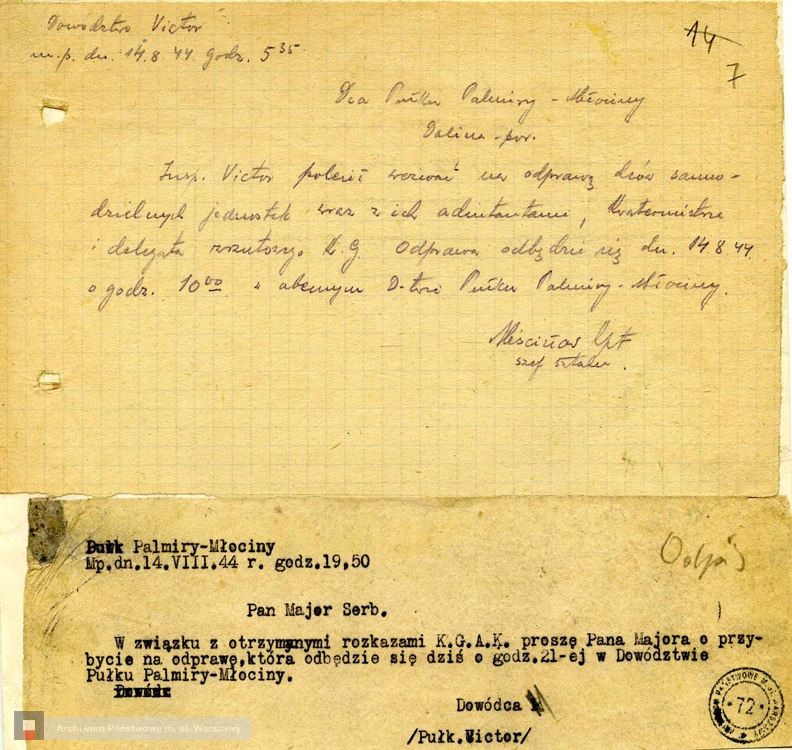 Dowództwo Victor
m.p. dn. 14.8.44 godz. 5³⁵.
14
7
Dca Pułku Palmiry - Młociny
Dolina - por.
Insp. Victor polecił wezwać na odprawę dców samo-
dzielnych jednostek wraz z ich adiutantami, kwatermistrza
i delegata zrzutowego K.G. Odprawa odbędzie się dn. 14 8 44
o godz. 10⁰⁰ w obecnym D-twie Pułku Palmiry - Młociny.
szef sztabu.
Pułk Palmiry-Młociny
Mp.dn.14.VIII.44 r. godz.19,50
Pan Major Serb.
W związku z otrzymanymi rozkazami K.G.A.K. proszę Pana Majora o przy-
bycie na odprawę,która odbędzie się dziś o godz.21-ej w Dowództwie
Pułku Palmiry-Młociny.
Dowódca
/Pułk.Victor/
72
Archiwum Państwowe m. st. Warszawy